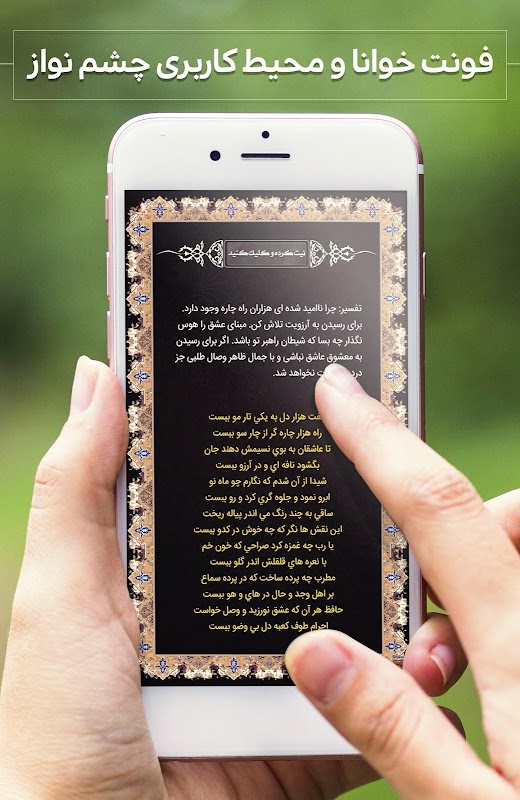 فونت خوانا و محیط کاربری چشم نواز
نیت کرده و کلیک کنید
تفسیر: چرا ناامید شده ای هزاران راه چاره وجود دارد.
برای رسیدن به آرزویت تلاش کن. مبنای عشق را هوس
نگذار چه بسا که شیطان راهبر تو باشد. اگر برای رسیدن
به معشوق عاشق نباشی و با جمال ظاهر وصال طلبی جز
نخواهد شد.
هزار دل به يكي تار مو ببست
راه هزار چاره گر از چار سو ببست
تا عاشقان به بوي نسيمش دهند جان
بگشود نافه اي و در آرزو ببست
شيدا از آن شدم كه نگارم چو ماه نو
ابرو نمود و جلوه گري كرد و رو ببست
ساقي به چند رنگ مي اندر پياله ريخت
اين نقش ها نگر كه چه خوش در كدو ببست
يا رب چه غمزه كرد صراحي كه خون خم
با نعره هاي قلقلش اندر گلو ببست
مطرب چه پرده ساخت كه در پرده سماع
بر اهل وجد و حال در هاي و هو ببست
حافظ هر آن كه عشق نورزيد و وصل خواست
احرام طوف كعبه دل بي وضو ببست